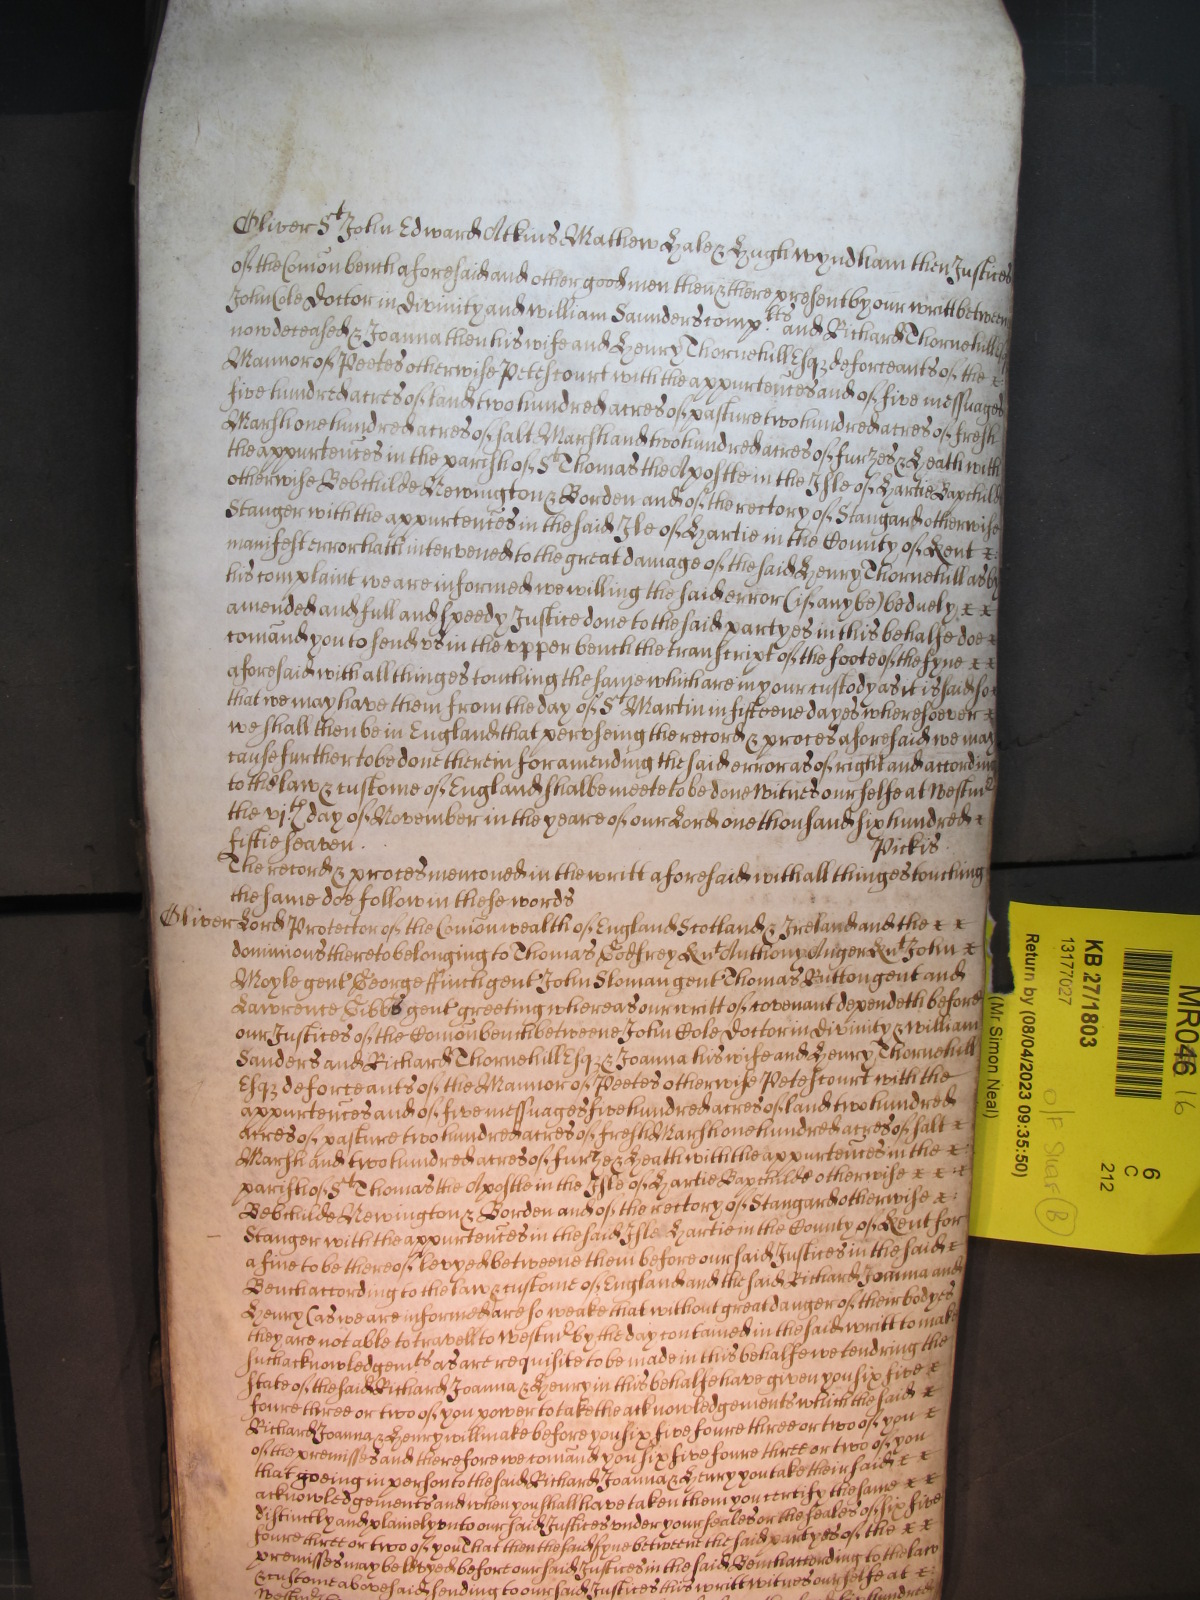 Oliver St John Edward Atkins Mathew Hale & Hugh Wyndham then Justices
of the Comon bench aforesaid and other good men then & there present by our writt betweene
John Cole Doctor in Divinity and William Saunders compl:ts and Richard Thornehill Esqr
now deceased & Joanna then his wife and Henry Thornehull Esqr deforceants of the x
Mannor of Peetes otherwise Petescourt with the appurtences and of five messuages
five hundred acres of land two hundred acres of pasture two hundred acres of fresh
Marsh one hundred acres of salt Marsh and two hundred acres of furzes & Heath with
the appurtences in the parish of St Thomas the Apostle in the Isle of Hartie Bapchild
otherwise Bebchilde Newington & Borden and of the rectory of Stangard otherwise
Stanger with the appurtences in the said Ile of Hartie in the County of Kent x:
manifest error hath intervened to the great damage of the said Henry Thornehull as by
his complaint we are informed we willing the said error (if any be) be duely x x
amended and full and speedy Justice done to the said partyes in this behalfe doe x
comand you to send us in the upper bench the transcript of the foote of the fyne x x
aforesaid with all thinges touching the same which are in your custody as it is said so
that we may have them from the day of St Martin in fifteene dayes wheresoever x
we shall then be in England that perviseing the record & proces aforesaid we may
cause further to be done therein for amending the said error as of right and according
to the law & custome of England shalbe meete to be done witnes our selfe at Westmr
the vjth day of November in the yeare of our Lord one thousand six hundred x
fiftie seaven . Pickis
The record & proces mencōned in the writt aforesaid with all thinges touching
the same doe follow in these words
Oliver Lord Protector of the Comonwealth of England Scotland & Ireland and the x x
dominions thereto belonging to Thomas Godfrey Knt Anthony Auger Knt John x
Moyle gent George ffinch gent John Sloman gent Thomas Rutton gent and
Lawrence Gibbs gent greeting whereas our writt of covenant dependeth before
our Justices of the Comon bench betweene John Cole Doctor in Divinity & William
Sanders and Richard Thornehill Esqr & Joanna his wife and Henry Thornehull
Esqr deforceants of the Mannor of Peetes otherwise Petescourt with the
appurtences and of five messuages five hundred acres of land two hundred
acres of pasture two hundred acres of fresh Marsh one hundred acres of salt x
Marsh and two hundred acres of furze & Heath with the appurtences in the x
parish of St Thomas the Apostle in the Isle of Hartie Bapchilde otherwise x x x
Bebchilde Newington & Borden and of the rectory of Stangard otherwise x:
Stanger with the appurtences in the said Isle Hartie in the County of Kent for
a fine to be thereof levyed betweene them before our said Justices in the said x
Bench according to the law & custome of England and the said Richard Joanna and
Henry (as we are informed) are so weake that without great danger of their bodyes
they are not able to travell to Westmr by the day contained in the said writt to make
such acknowledgemts as are requisite to be made in this behalfe we tendring the
state of the said Richard Joanna & Henry in this behalfe have given you six five x
foure three or two of you power to take the acknowledgements which the said x
Richard Joanna & Henry will make before you six five foure three or two of you x
of the premisses and therefore we comand you six five foure three or two of you
that goeing in person to the said Richard Joanna & Henry you take their said x x
acknowledgements and when you shall have taken them you certify the same x x
distinctly and plainely unto our said Justices under your seales or the seales of six five
foure three or two of you That then the said fyne betweene the said partyes of the x x
premisses may be levyed before our said Justices in the said Bench according to the law
& custome abovesaid sending to our said Justices this writt witnes our selfe at x:
MR046
16
6
C
212
KB 27/1803
13177027
Return by (08/04/2023 09:35:50)
(Mr Simon Neal)
B